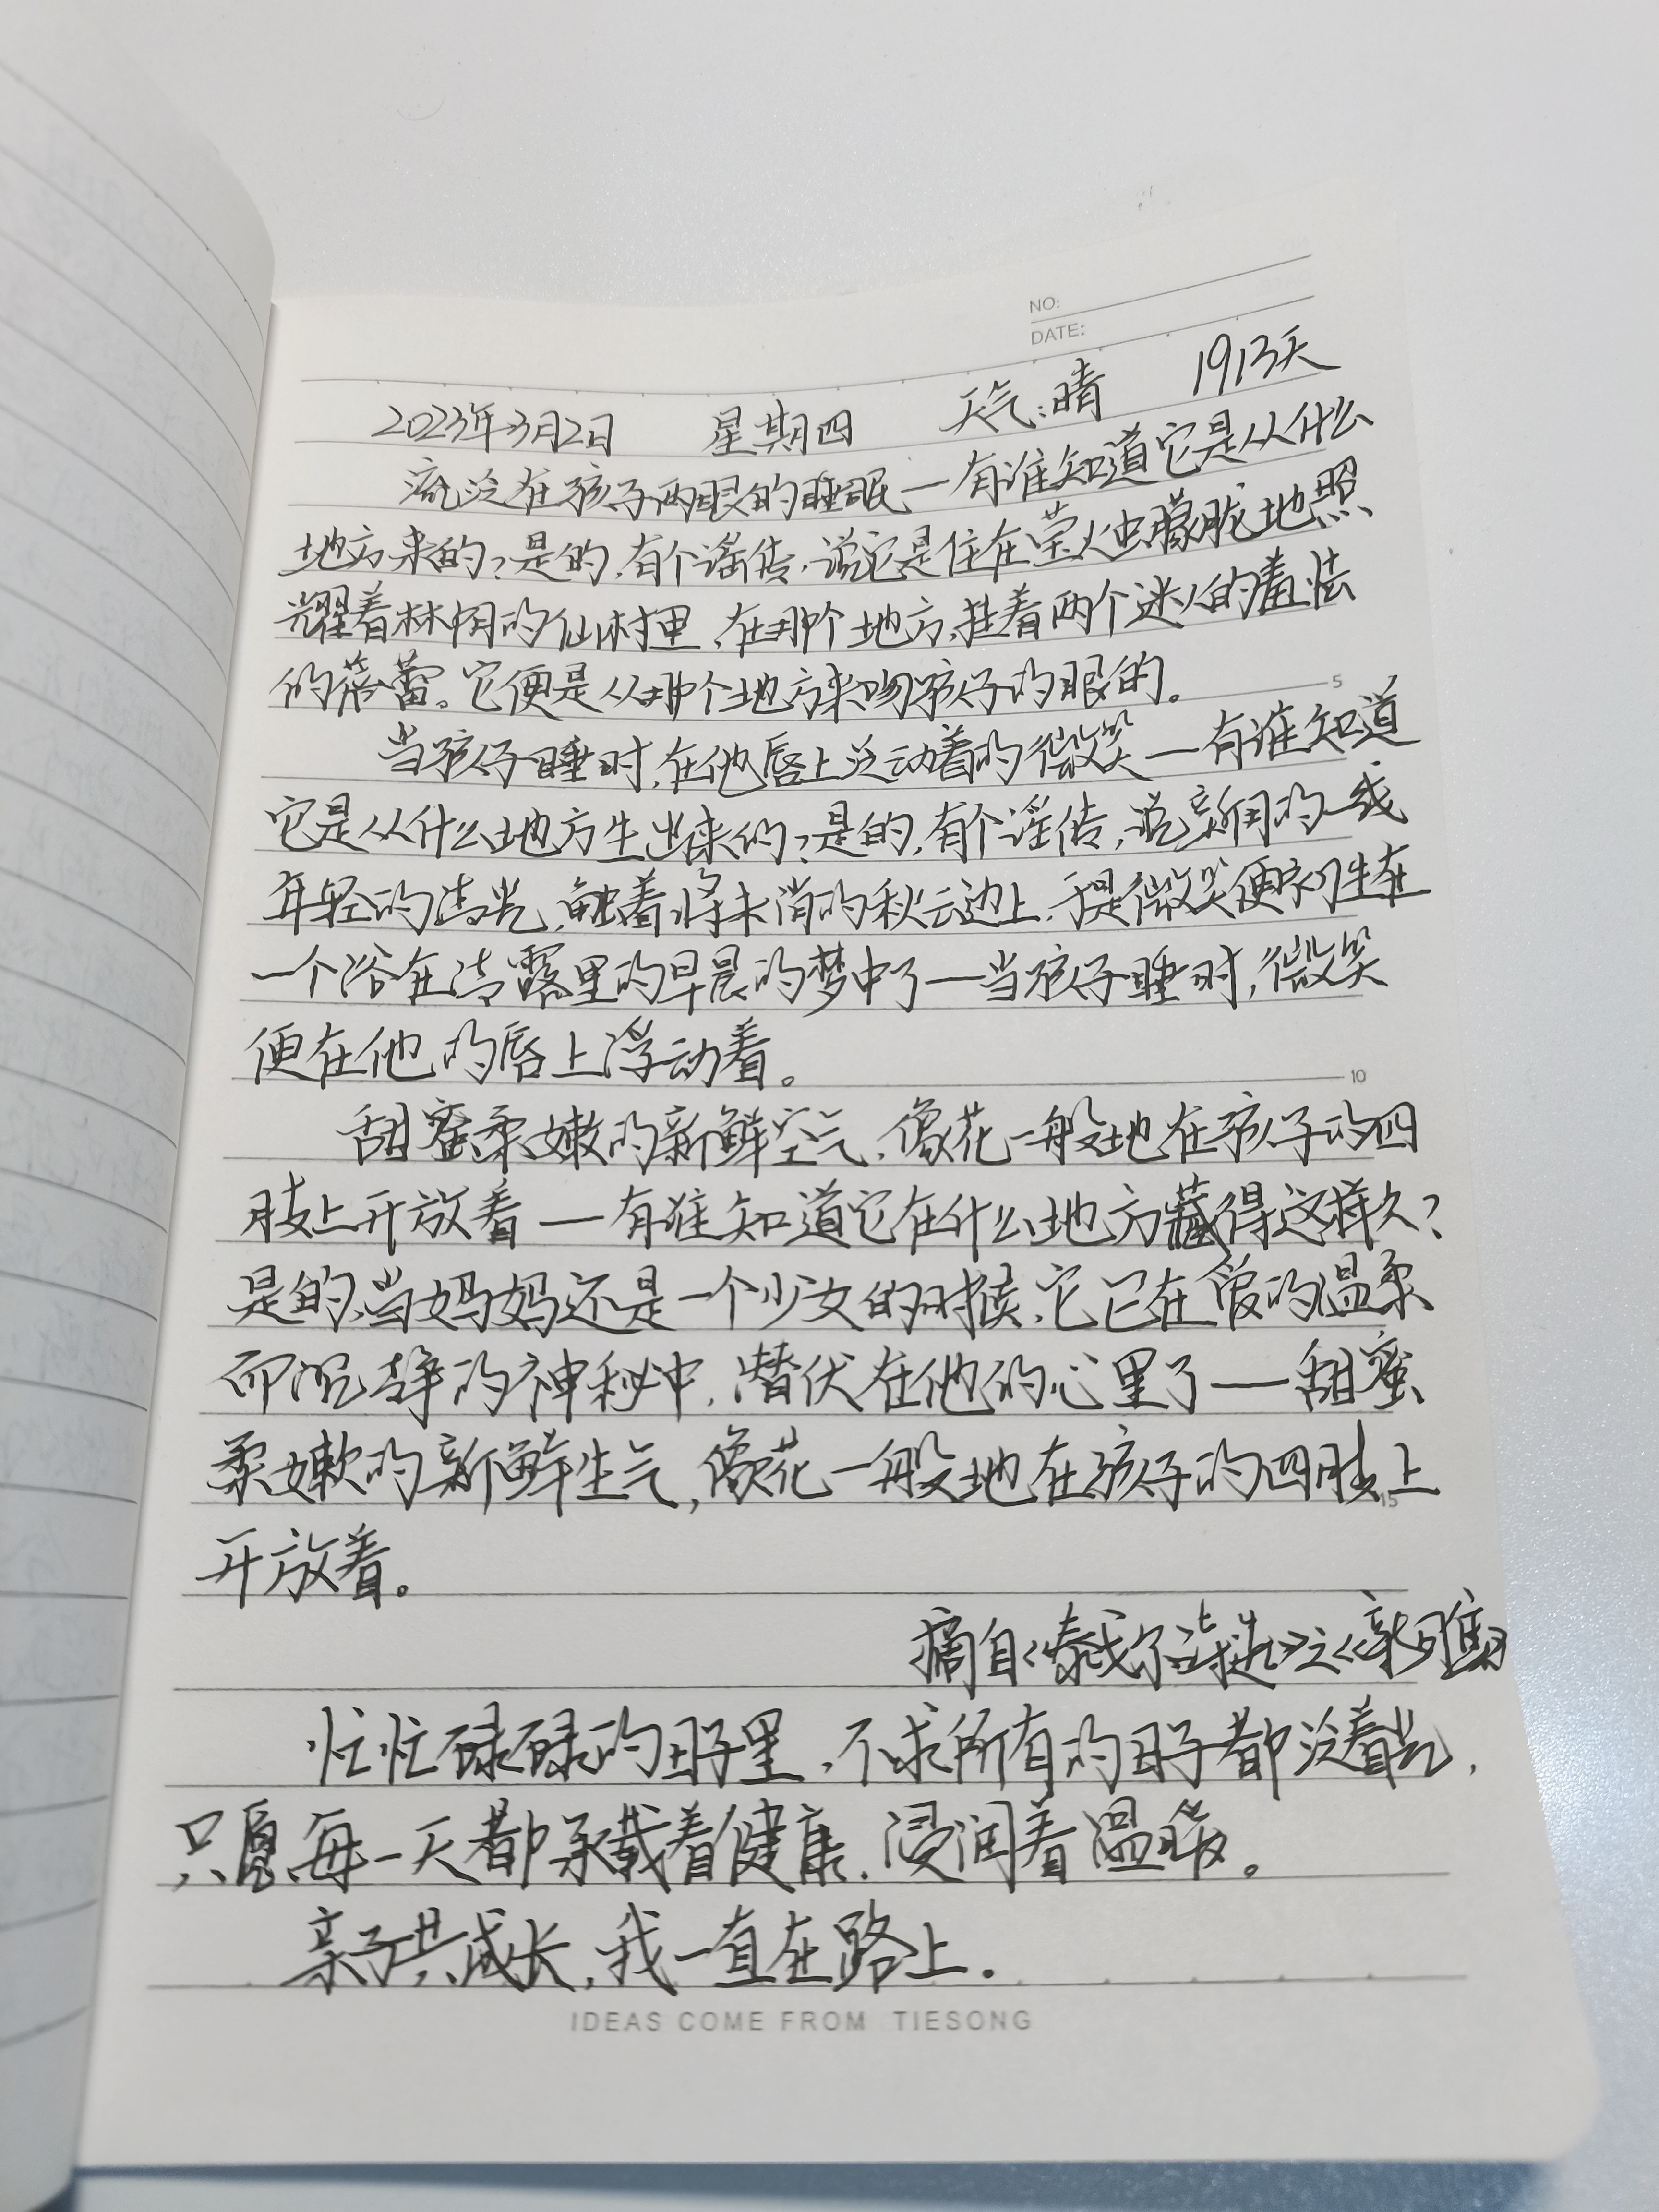 NO:
DATE:
2023年3月2日 星期四 天气:晴 1913天
流泛在孩子两眼的睡眠—有谁知道它是从什么
地方来的?是的,有个谣传,说它是住在萤火虫朦胧地照
耀着林间的仙村里,在那个地方,挂着两个迷人的羞怯
的蓓蕾。它便是从那个地方来吻孩子的眼的。
5
当孩子睡时,在他唇上泛动着的微笑—有谁知道
它是从什么地方生出来的?是的,有个谣传,说新月的一线
年轻的清光,触着将未消的秋云边上,于是微笑便初生在
一个浴在清露里的早晨的梦中了—当孩子睡时,微笑
便在他的唇上浮动着。
10
甜蜜柔嫩的新鲜空气,像花一般地在孩子的四
肢上开放着—有谁知道它在什么地方藏得这样久?
是的,当妈妈还是一个少女的时候,它已在爱的温柔
而沉静的神秘中,潜伏在他的心里了—甜蜜
柔嫩的新鲜生气,像花一般地在孩子的四肢上
15
开放着。
摘自《泰戈尔诗选》之《新月集》
忙忙碌碌的日子里,不求所有的日子都泛着光,
只愿每一天都承载着健康,浸润着温暖。
亲子共成长,我一直在路上.
IDEAS COME FROM TIESONG